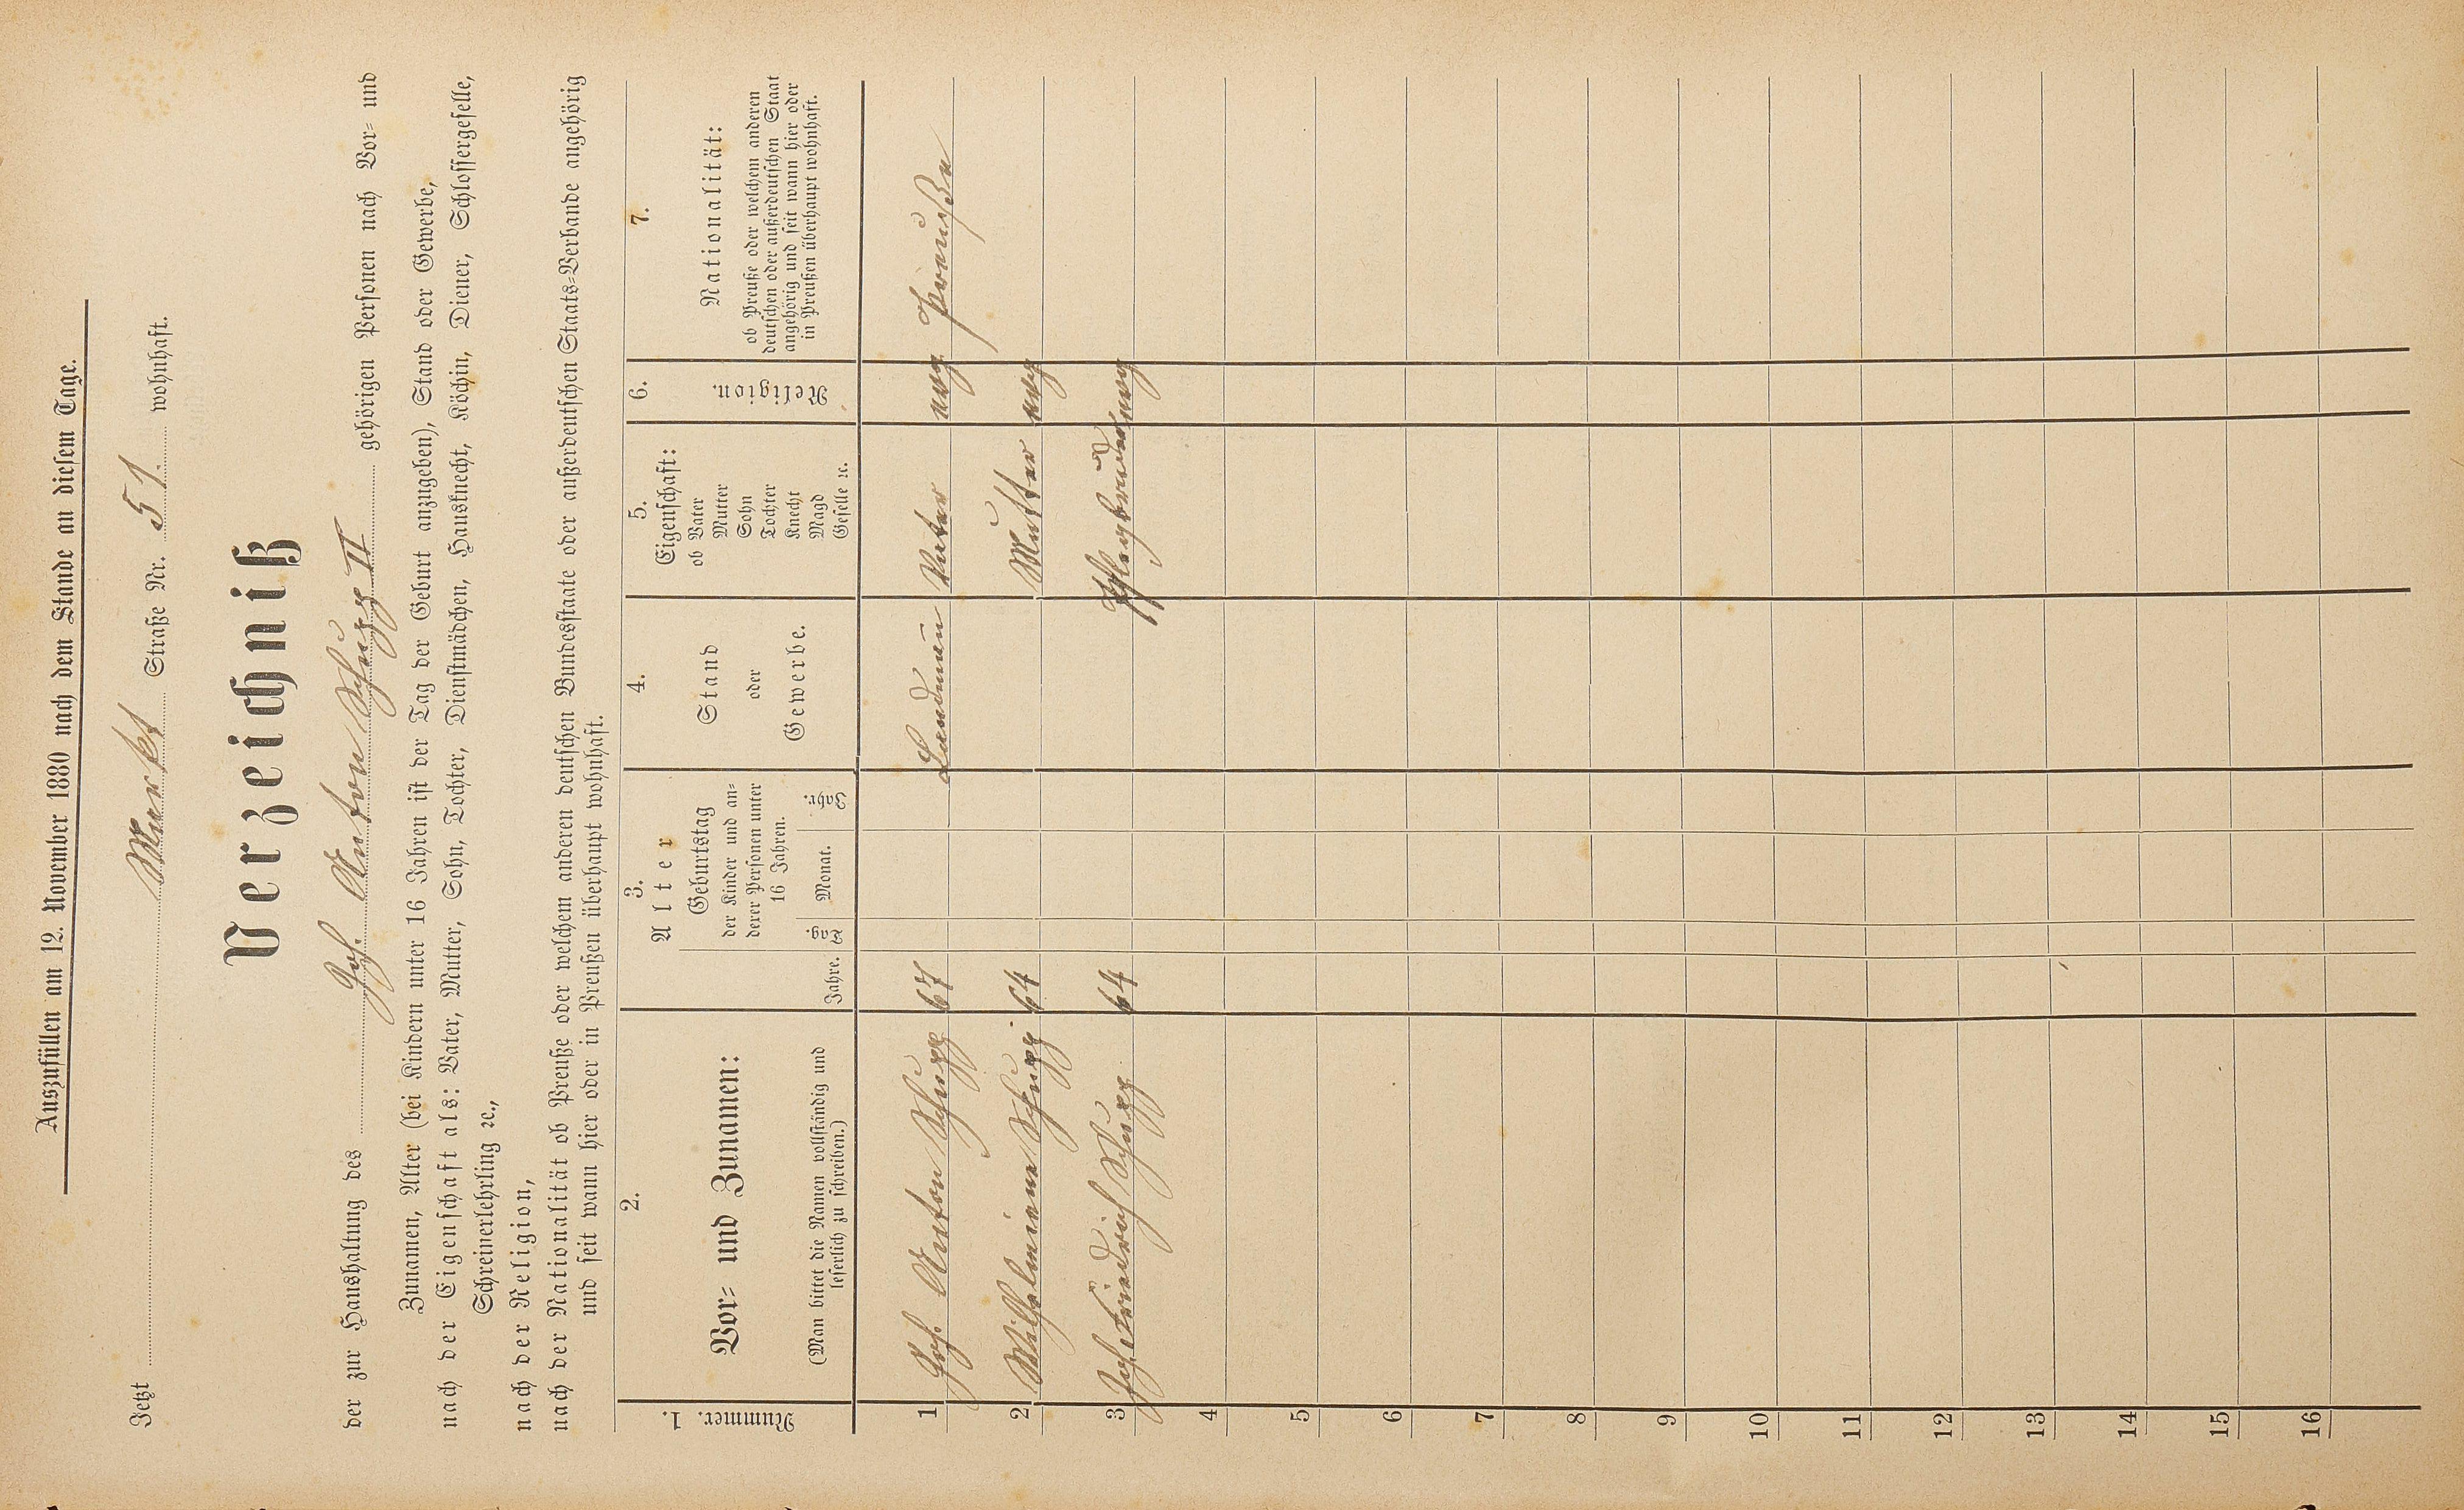 Auszufüllen am 12. November 1880 nach dem Stande an diesem Tage.
Jetzt Markt Straße Nr. 51. wohnhaft.
Verzeichniß
der zur Haushaltung des Joh. Anton Schupp II gehörigen Personen nach Vor- und
Zunamen, Alter (bei Kindern unter 16 Jahren ist der Tag der Geburt anzugeben), Stand oder Gewerbe,
nach der Eigenschaft als: Vater, Mutter, Sohn, Tochter, Dienstmädchen, Hausknecht, Köchin, Diener, Schlossergeselle,
Schreinerlehrling ꝛc.,
nach der Religion,
nach der Nationalität ob Preuße oder welchem anderen deutschen Bundesstaate oder außerdeutschen Staats-Verbande angehörig
und seit wann hier oder in Preußen überhaupt wohnhaft.
1. Nummer.
2.
Vor- und Zunamen:
(Man bittet die Namen vollständig und
leserlich zu schreiben.)
3.
Alter
Jahre.
Geburtstag
der Kinder und an-
derer Personen unter
16 Jahren.
Tag. Monat. Jahr.
4.
Stand
oder
Gewerbe.
5.
Eigenschaft:
ob Vater
Mutter
Sohn
Tochter
Knecht
Magd
Geselle ꝛc.
6.
Religion.
7.
Nationalität:
ob Preuße oder welchem anderen
deutschen oder außerdeutschen Staat
angehörig und seit wann hier oder
in Preußen überhaupt wohnhaft.
1 Joh. Anton Schupp 67 Landman̄ Vater evg Preuße
2 Wilhelmiene Schupp 64 Mutter evg
3 Joh. Friedrich Schupp 64 evg
4
5
6
7
8
9
10
11
12
13
14
15
16